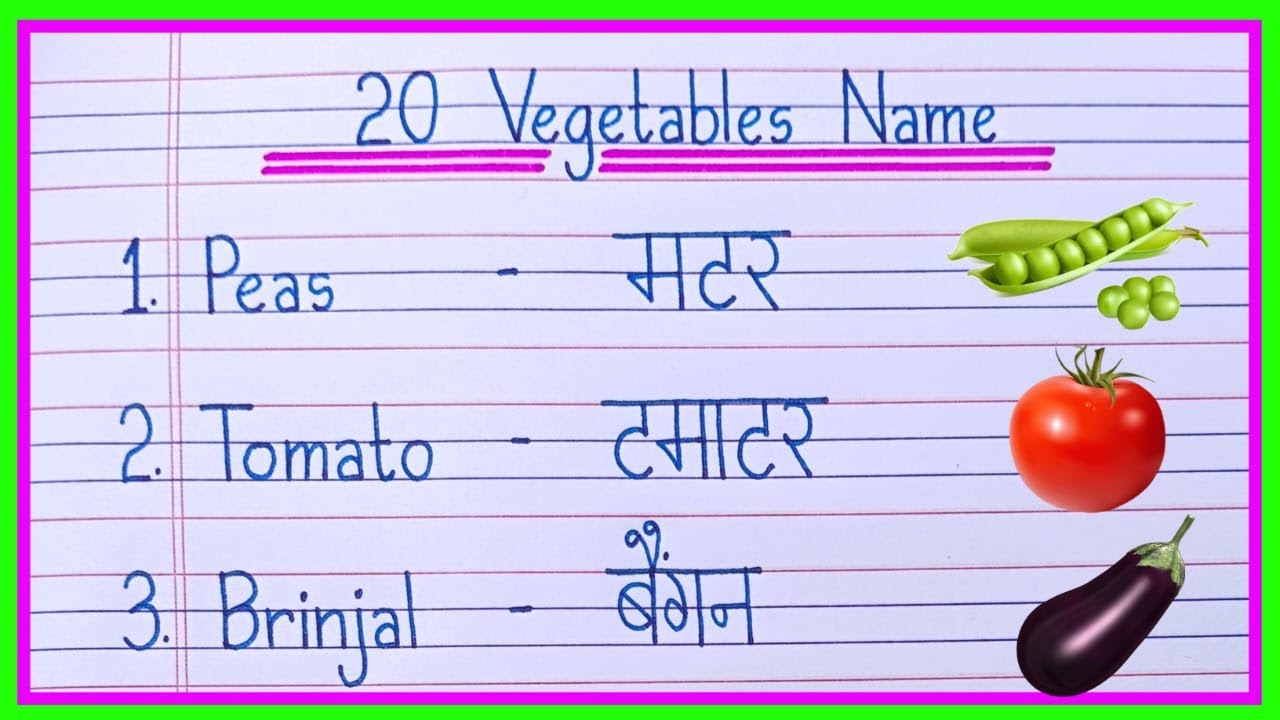 20 Vegetables Name
1. Peas - मटर
2. Tomato - टमाटर
3. Brinjal - बैंगन